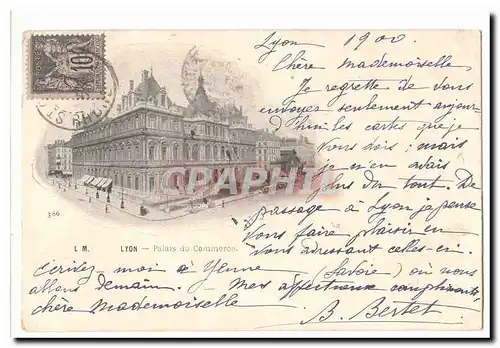 Lyon 1900
Chère Mademoiselle
Je regrette de vous
envoyer seulement aujour-
d'hui les cartes que je
vous dois ; mais
je n'en avais
plus du tout. De
passage à Lyon je pense
vous faire plaisir en
vous adressant celles-ci.
Ecrivez-moi à Yenne (Savoie) où nous
allons demain. Mes affectueux compliments,
chère Mademoiselle
B. Bertet
10
366
L M. LYON — Palais du Commerce.
CPARAMA